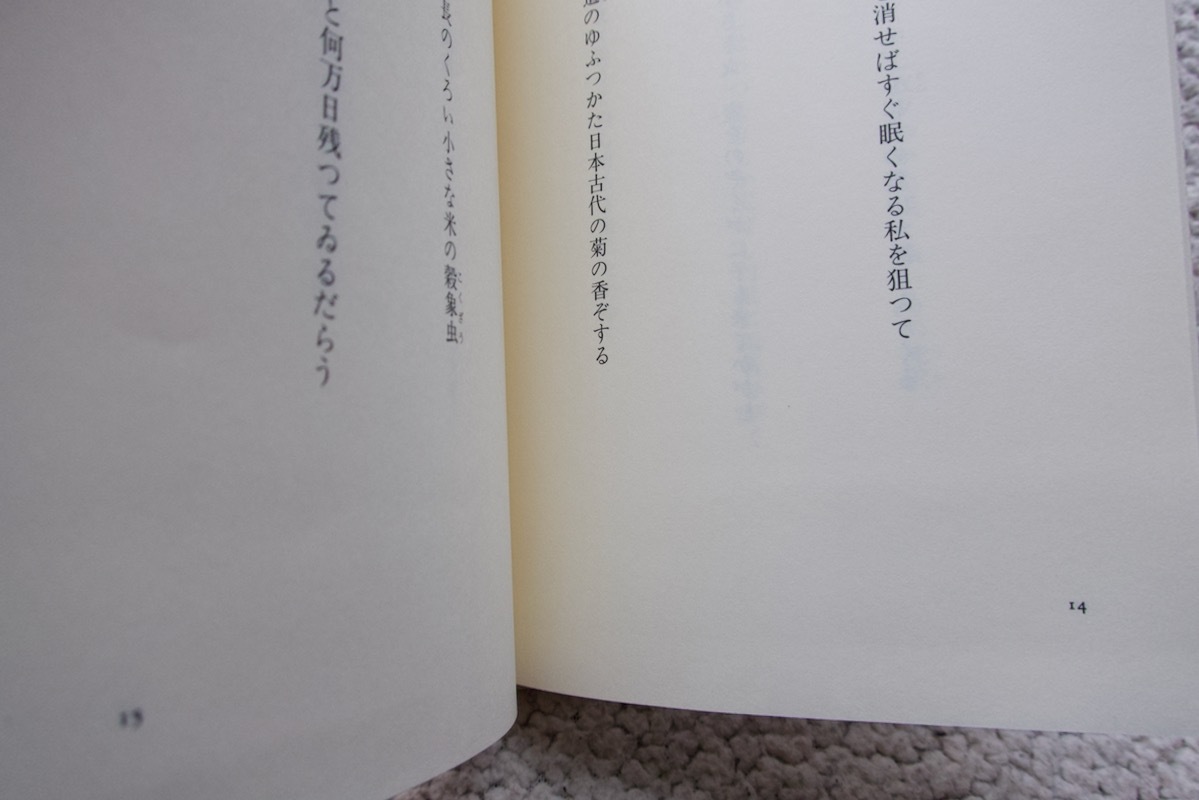 消せばすぐ眠くなる私を狙つて
のゆふつかた日本古代の菊の香ぞする
14
長のくろい小さな米の穀象虫
こくぞう
と何万日残つてゐるだらう
15